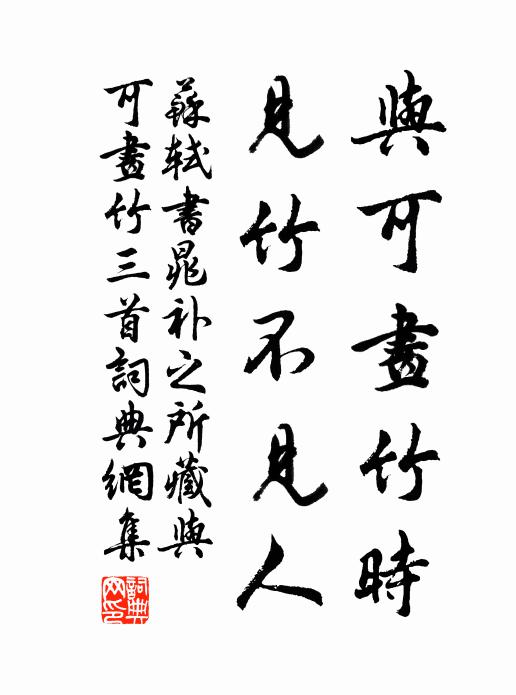 與可畫竹時
見竹不見人
蘇軾書晁補之所藏與
可畫竹三首詞典網集
詞典
网印